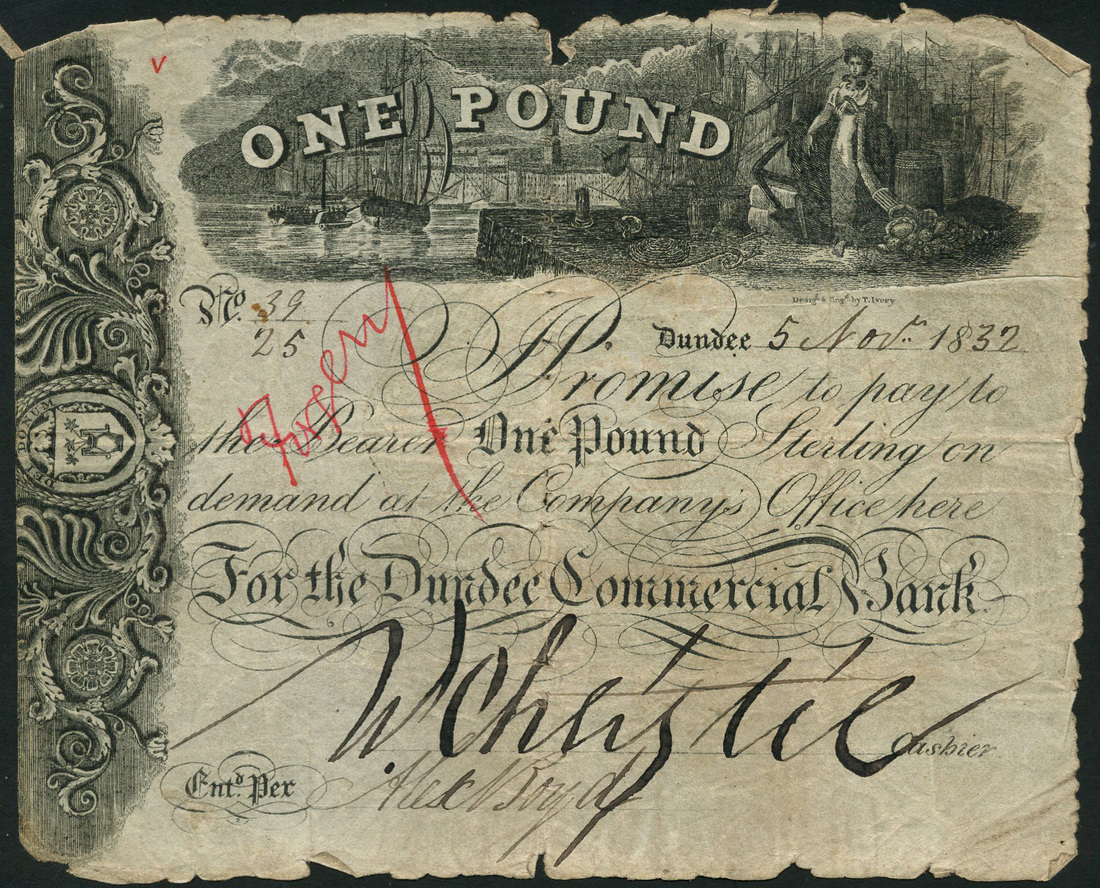 V
ONE POUND
Design'd & Eng'd by T. Ivory
No. 39
25
Dundee 5 Novr. 1832
Forgery
I Promise to pay to
the Bearer One Pound Sterling on
demand at the Company's Office here
For the Dundee Commercial Bank
W Christie Cashier
Entd. Per Alex Boyd